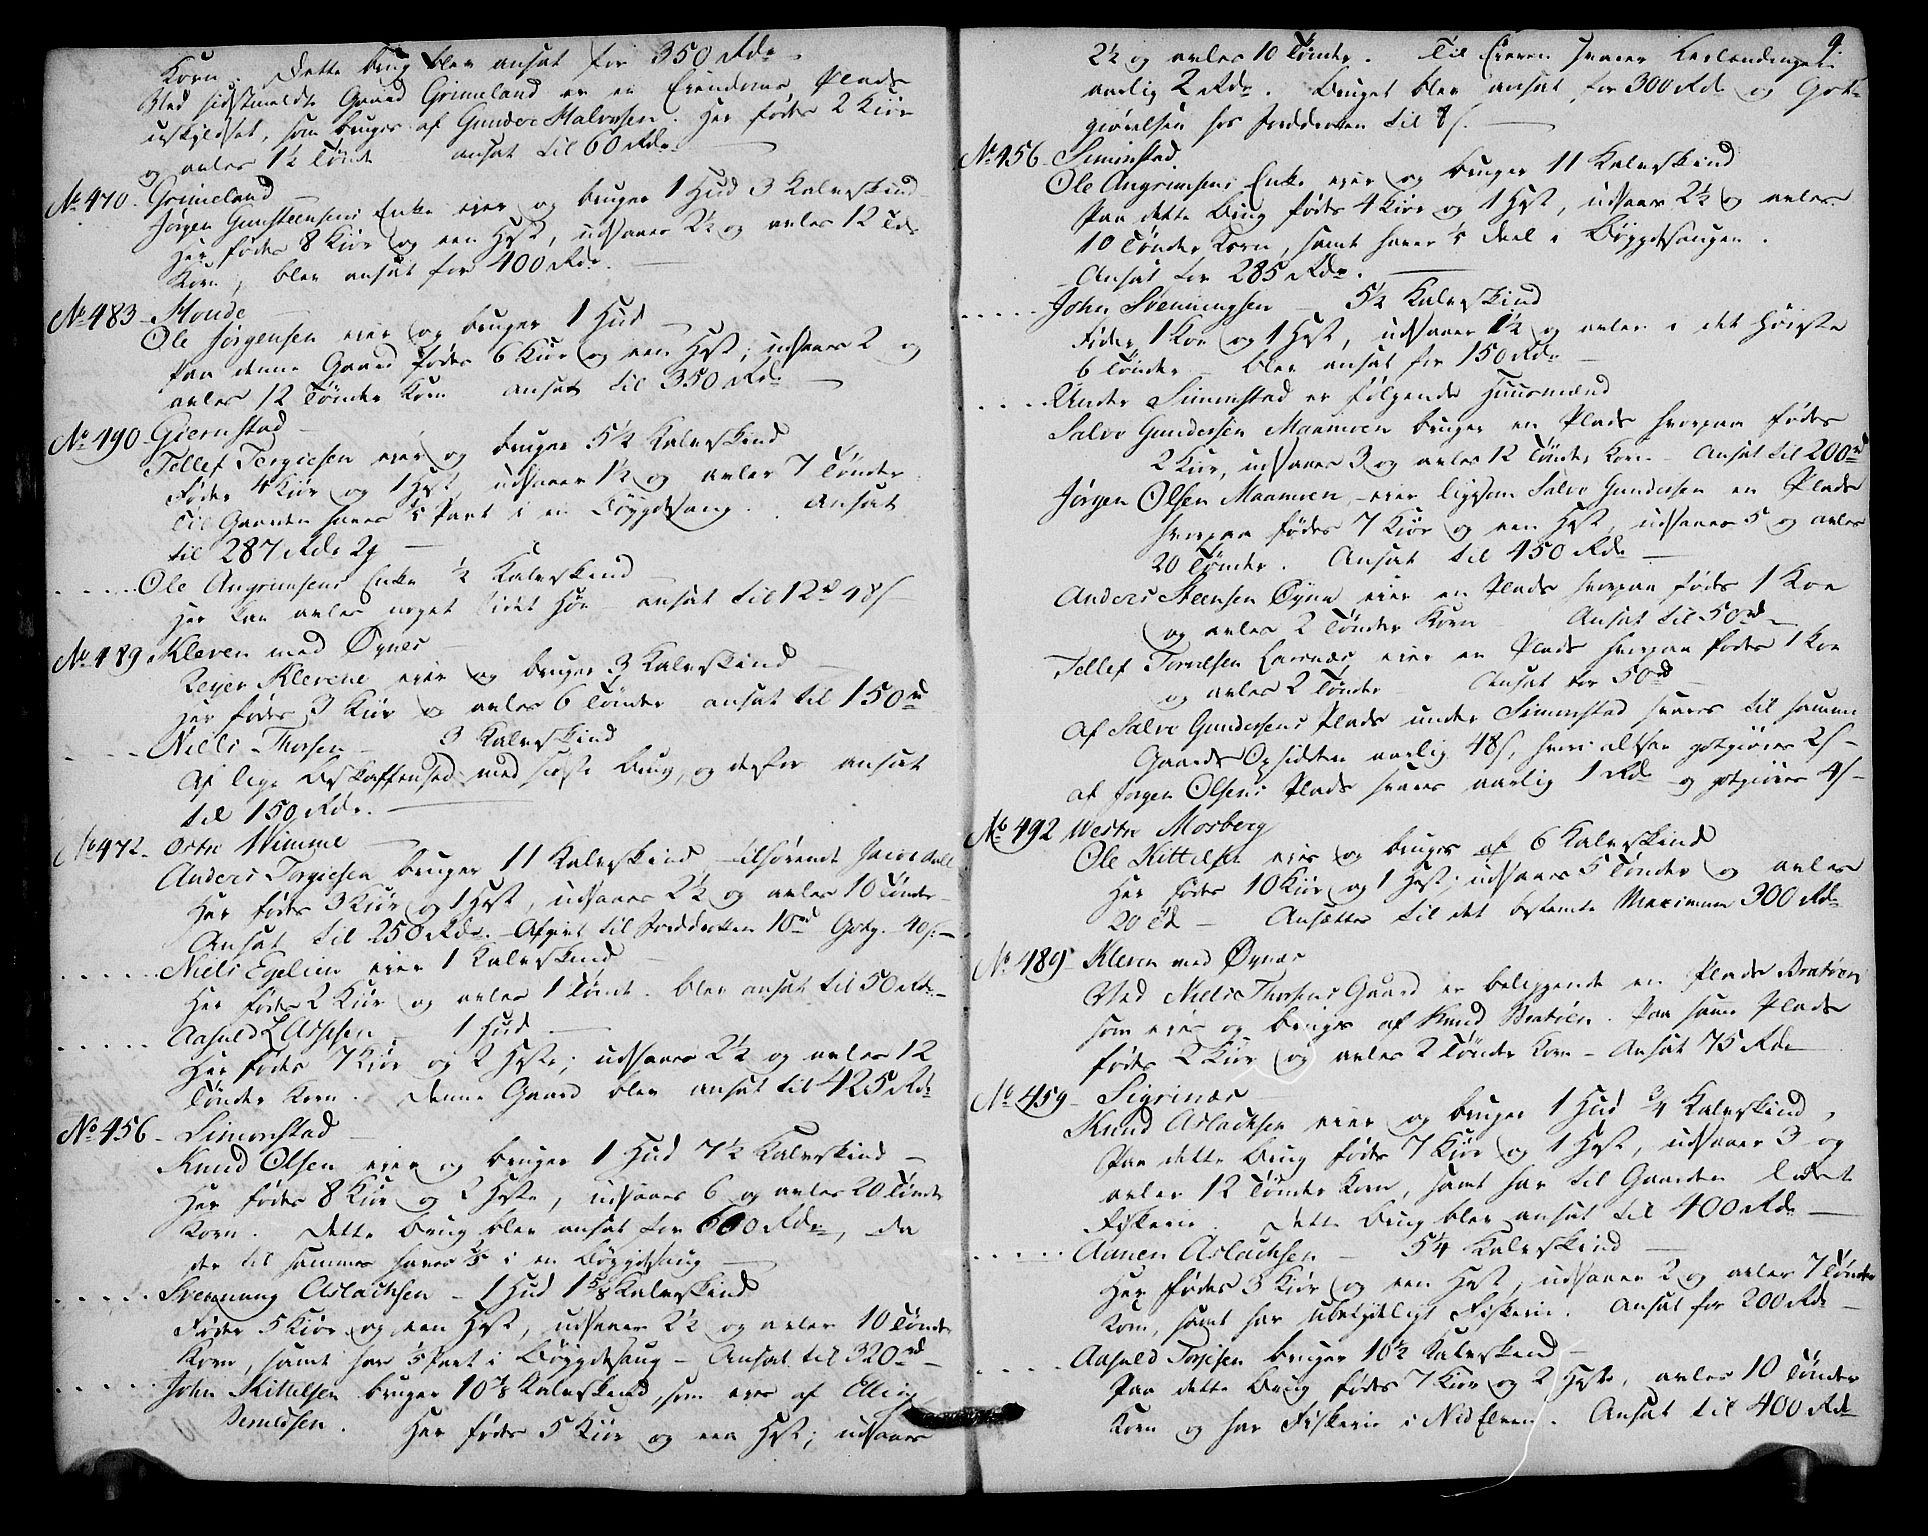 Korn. Dette brug blev ansat for 350 Rdr.
Ved sidstmeldte Gaard Grimeland er en Eiendoms Plads
uskyldsat, som bruges af Gunder Halvorsen. Her fødes 2 Kiør
og avles 1½ Tønde ansat til 60 Rdr.
No 470. Grimeland
Jørgen Gunsteensens Enke eier og bruger 1 Hud 3 Kalvskind
Her fødes 8 Kiør og een Hest, udsaaes 2½ og avles 12 Tdr
Korn, blev ansat for 400 Rdr.
No 483 Monde
Ole Jørgensen eier og bruger 1 Hud
Paa denne Gaard fødes 6 Kiør og een Hest; udsaaes 2 og
avles 12 Tønder Korn ansat til 350 Rdr
No 490 Giernstad
Tellef Tergiesen eier og bruger 5½ Kalvskind
Føder 4 Kiør og 1 Hest udsaaer 1½ og avler 7 Tønder
Til Gaarden haves ⅕ Part i en Bøygdesaug. Ansat
til 287 Rdr 2
Ole Angrimsens Enke ½ Kalvskind
Her kan avles noget lidet Høe ansat til 12 rd 48 s
No 489 Kleven med Øynes
Reyer Klevene eier og bruger 3 Kalvskind
Her fødes 3 Kiør og avles 6 Tønder ansat til 150 rd
Niels Thorsen 3 Kalvskind
Af lige Beskaffenhed med sidste Brug, og derfor ansat
til 150 Rdr.
No 472. Østre Wimme
Anders Torgiesen bruger 11 Kalvskind tilhørende Jacob Dall
Her fødes 3 Kiør og 1 Hest, udsaaes 2½ og avles 10 Tønder
Ansat til 250 Rdr. Afgivt til Jorddrotten 10 rd Godtg. 40 s.
Niels Egeliin eier 1 Kalvskind
Her fødes 2 Kiør og avles 1 Tønde. blev ansat til 50 Rdr
Aasuld L Aslesen 1 Hud
Her fødes 7 Kiør og 2 Heste; udsaaes 2½ og avles 12
Tønder Korn. Denne Gaard blev ansat til 425 Rdr
No 456. Simonstad
Knud Olsen eier og bruger 1 Hud 7½ Kalvskind
Her fødes 8 Kiør og 2 Heste, udsaaes 6 og avles 20 Tønder
Korn. Dette brug blev ansat for 600 Rdr, da
der til sammes haves ⅖ i en Bøygdesaug
Svennung Aslachsen - 1 Hud 1⅝ Kalvskind
Føder 5 Kiør og een Hest, udsaaer 2½ og avler 10 Tønder
Korn, samt har ⅕ Part i Bøygdesaug - Ansat til 320 rd
John Kittelsen bruger 10⅞ Kalvskind, som eies af Elling
. Her fødes 5 Kiør og een Hest; udsaaes
9.
2½ og avles 10 Tønder. Til Eieren svarer Leilændingen
aarlig 2 Rdr. Bruget blev ansat for 300 Rdr og Godt-
giørelsen hos Jorddrotten til 8 s.
No 456. Simonstad.
Ole Angrimsens Enke eier og bruger 11 Kalvskind
Paa dette Brug fødes 4 Kiør og 1 Hest, udsaaes 2½ og avles
10 Tønder Korn, samt haver ⅕ Deel i Bøygdesaugen.
Ansat for 285 Rdr.
John Svenningsen - 5½ Kalvskind
Føder 1 Koe og 1 Hest, udsaaer 1½ og avler i det Høieste
6 Tønder - blev ansat for 150 Rdr
Under Simonstad er følgende Huusmænd
Salve Gundersen Maamoen bruger en Plads hvorpaa fødes
2 Kiør, udsaaes 3 og avles 12 Tønder Korn - Ansat til 200 rd
Jørgen Olsen Maamoen, eier ligesom Salve Gundersen en Plads
hvorpaa fødes 7 Kiør og een Hest, udsaaes 5 og avles
20 Tønder. Ansat til 450 Rdr
Anders Steensen Øyna eier en Plads hvorpaa fødes 1 Koe
og avles 2 Tønder Korn Ansat til 50 rd
Tellef eier en Plads hvorpaa fødes 1 Koe
og avles 2 Tønder Ansat for 50 rd
Af Salve Gundersens Plads under Simonstad svares til samme
Gaards Opsidder aarlig 48 s, hvori altsaa godtgiøres 2 s -
af Jørgen Olsens Plads svares aarlig 1 Rdr og godtgiøres 4 s -
No 492 Westre Mosberg
Ole Kittelsen eier og bruges af 6 Kalvskind
Her fødes 10 Kiør og 1 Hest; udsaaes 5 Tønder og avles
20 Td - Ansættes til det bestemte Maximum 300 Rdr
No 489. Kleven med Øynes
Ved Niels Thorsens Gaard er beliggende en Plads Bratøen
som eies og bruges af Knud Bratøen. Paa samme Plads
fødes 2 Kiør og avles 2 Tønder Korn - Ansat 75 Rdr
No 459. Sigrinæs
Knud Aslachsen eier og bruger 1 Hud ¾ Kalvskind.
Paa dette Brug fødes 7 Kiør og 1 Hest, udsaaes 3 og
avles 12 Tønder Korn, samt har til Gaarden lidet
Fiskerie. Dette Brug blev ansat til 400 Rdr
Aanen Aslachsen - 5¼ Kalvskind
Her fødes 3 Kiør og een Hest, udsaaes 2 og avles 7 Tønder
Korn, samt har ubetydeligt Fiskerie. Ansat for 200 Rdr
Aasuld Torjusen bruger 10½ Kalvskind -
Paa dette Brug fødes 7 Kiør og 2 Heste, avles 10 Tønder
Korn og har Fiskerie i Nid Elven. Ansat til 400 Rdr